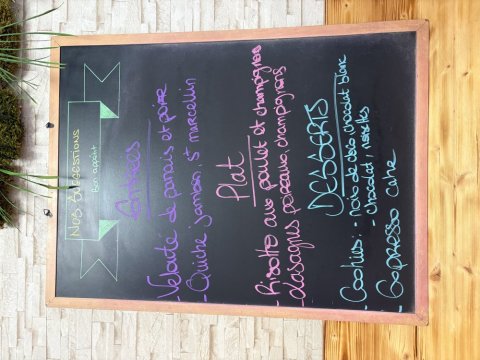 Nos Suggestions
Bon appétit
Entrées
- Velouté de panais et poire
- Quiche jambon St marcellin
Plat
- Risotto aux poulet et champignons
- Lasagnes poireaux, champignons
DESSERTS
Cookies: - noix de coco chocolat blanc
- chocolat, noisettes
Expresso Cake